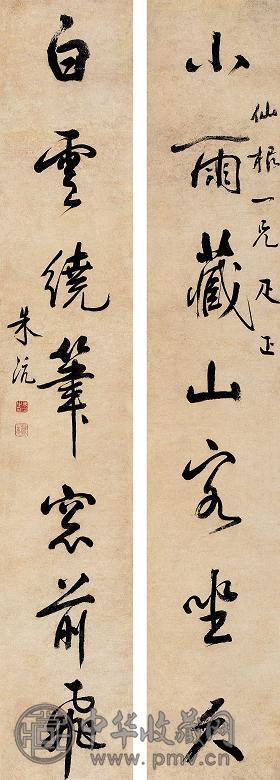 小雨藏山客坐久
仙根一兄疋正
白雲繞筆窓前飛
朱沆
中华收藏网
www.pmv.cn